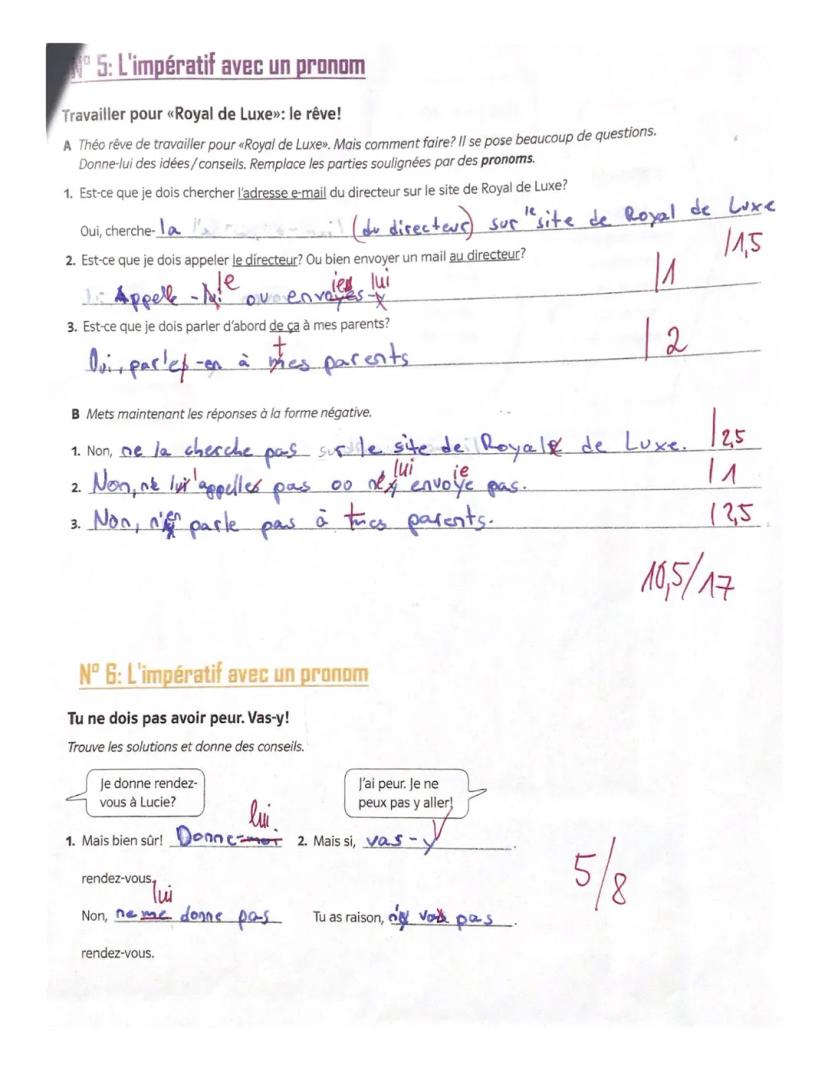 N° 5: L'impératif avec un pronom
Travailler pour «Royal de Luxe»: le rêve!
A Théo rêve de travailler pour «Royal de Luxe». Mais comment faire? Il se pose beaucoup de questions.
Donne-lui des idées/conseils. Remplace les parties soulignées par des pronoms.
1. Est-ce que je dois chercher l'adresse e-mail du directeur sur le site de Royal de Luxe?
Oui, cherche-la (du directeur) sur le site de Royal de Luxe
1,5
2. Est-ce que je dois appeler le directeur? Ou bien envoyer un mail au directeur?
le ies lui
Appelle-lui ou envoyes-y
1
3. Est-ce que je dois parler d'abord de ça à mes parents?
t
Oui, parles-en à mes parents
2
B Mets maintenant les réponses à la forme négative.
1. Non, ne la cherche pas sur le site de Royale de Luxe. 2,5
lui ie
2. Non, ne appelles pas ou envoye pas. 1
en
3. Non, parle pas à mes parents. 2,5
10,5/17
N° 6: L'impératif avec un pronom
Tu ne dois pas avoir peur. Vas-y!
Trouve les solutions et donne des conseils.
Je donne rendez-
vous à Lucie?
J'ai peur. Je ne
peux pas y aller!
lui
1. Mais bien sûr! Donne-moi 2. Mais si, vas-y.
5/8
rendez-vous.
lui
Non, ne me donne pas Tu as raison, n'y vas pas.
rendez-vous.